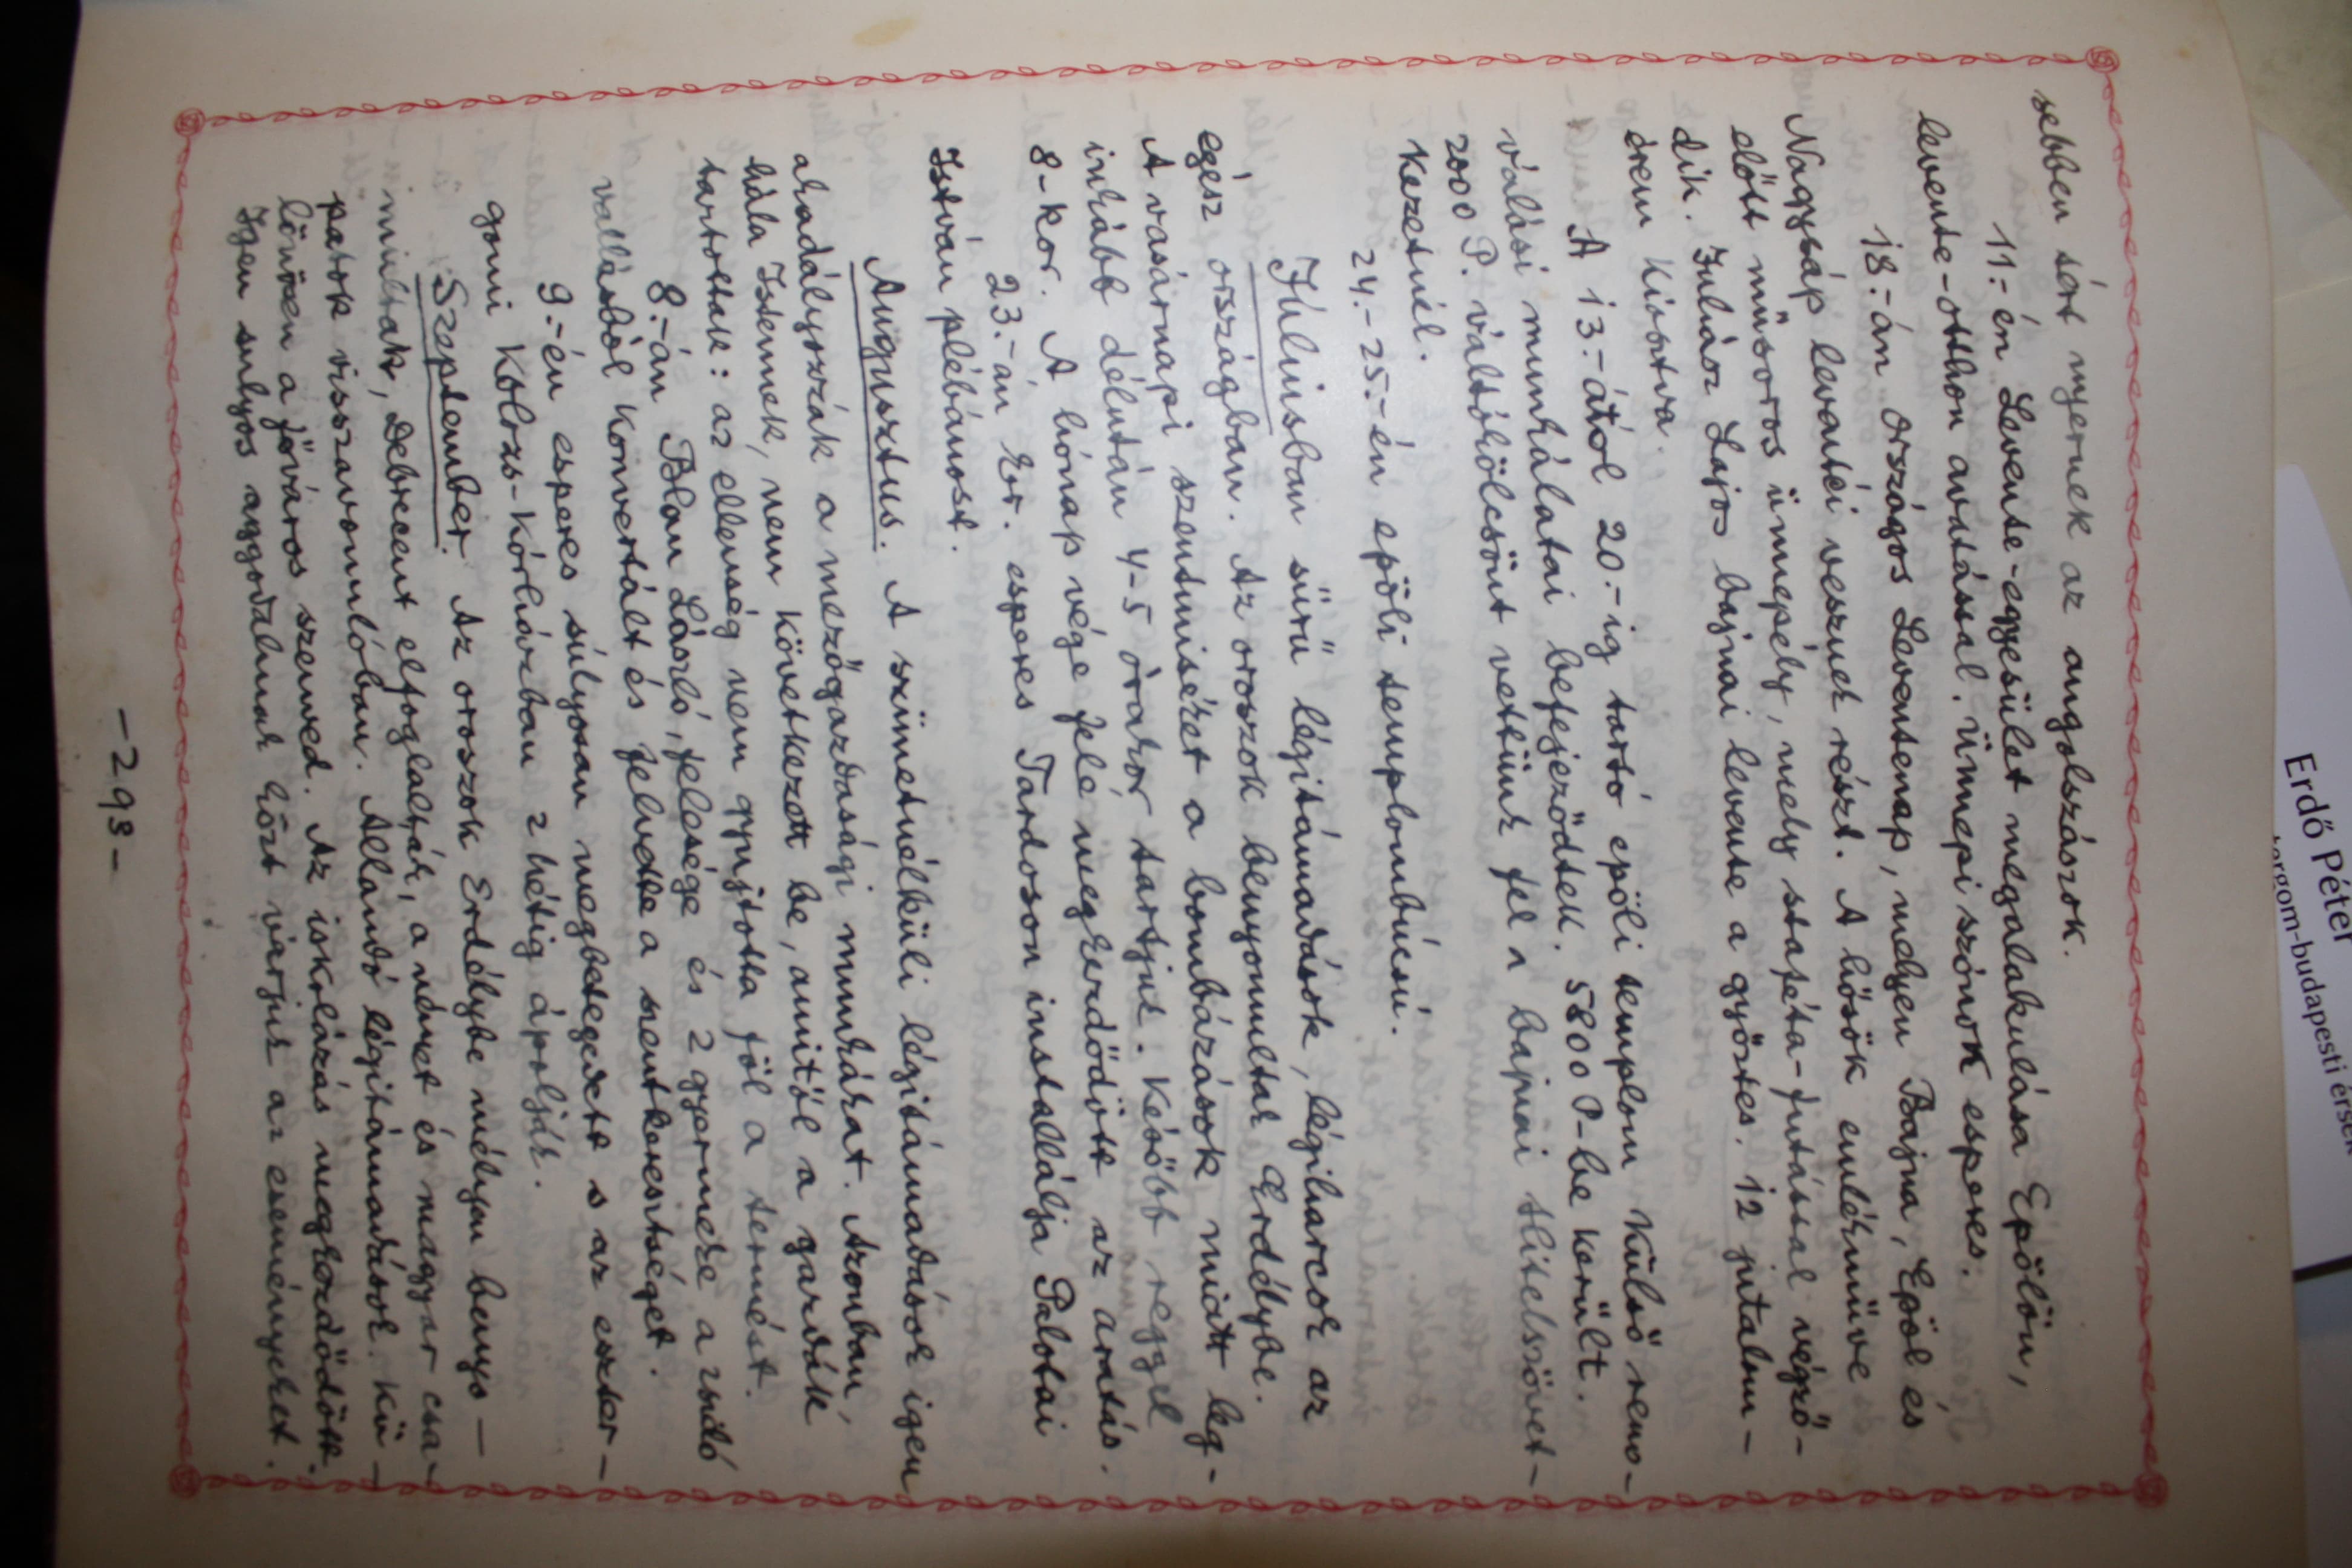 sebben tért nyernek az angolszászok.
11.-én Levente-egyesület megalakulása Epölön,
levente-otthon avatással. Ünnepi szónok esperes.
18.-án Országos Leventenap, melyen Bajna, Epöl és
Nagysáp leventéi vesznek részt. A hősök emlékműve
előtt műsoros ünnepély, mely staféta-futással végző-
dik. Juhász Lajos bajnai levente a győztes. 12 jutalom-
érem kiosztva.
A 13.-ától 20.-ig tartó epöli templom külső reno-
válási munkálatai befejeződtek. 5800 P-be került.
2000 P. váltókölcsönt vettünk fel a bajnai Hitelszövet-
kezetnél.
24.-25.-én epöli templombúcsú.
Júliusban sürű légitámadások, légiharcok az
egész országban. Az oroszok benyomultak Erdélybe.
A vasárnapi szentmiséket a bombázások miatt leg-
inkább délután 4-5 órakor tartjuk. Később reggel
8-kor. A hónap vége felé megkezdődött az aratás.
23.-án ker. esperes Tardoson installálja Palotai
István plébánost.
Augusztus. A szünetnélküli légitámadások igen
akadályozzák a mezőgazdasági munkákat. Azonban,
hála Istennek, nem következett be, amitől a gazdák
tartottak: az ellenség nem gyujtotta föl a termést.
8.-án Blau László, felesége és 2 gyermeke a zsidó
vallásból konvertált és felvette a szentkeresztséget.
9.-én esperes súlyosan megbetegedett s az eszter-
gomi Kolozs-kórházban 2 hétig ápolják.
Szeptember. Az oroszok Erdélybe mélyen benyo-
multak, Debrecent elfoglalták, a német és magyar csa-
patok visszavonulóban. Allandó légitámadások. Kü-
lönösen a főváros szenved. Az iskolázás megkezdődött.
Igen sulyos aggodalmak közt várjuk az eseményeket.
-293-
Erdő Péter